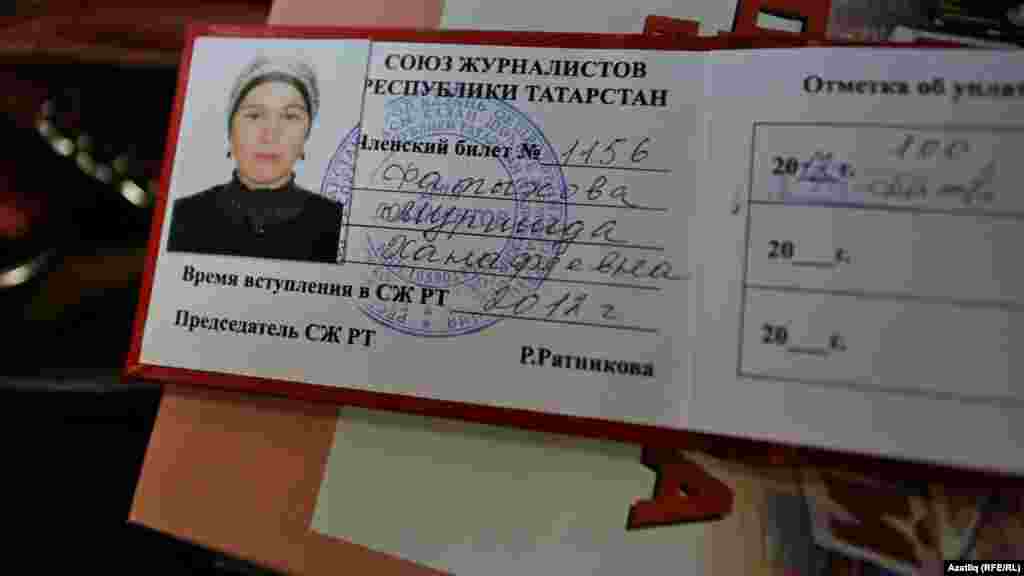 СОЮЗ ЖУРНАЛИСТОВ
РЕСПУБЛИКИ ТАТАРСТАН
Членский билет № 1156
Ханафиевна
Время вступления в СЖ РТ 2012 г
Председатель СЖ РТ
Р.Ратникова
Отметка об уплат
20 г. 100
20___г.
20___г.
Azatliq (RFE/RL)